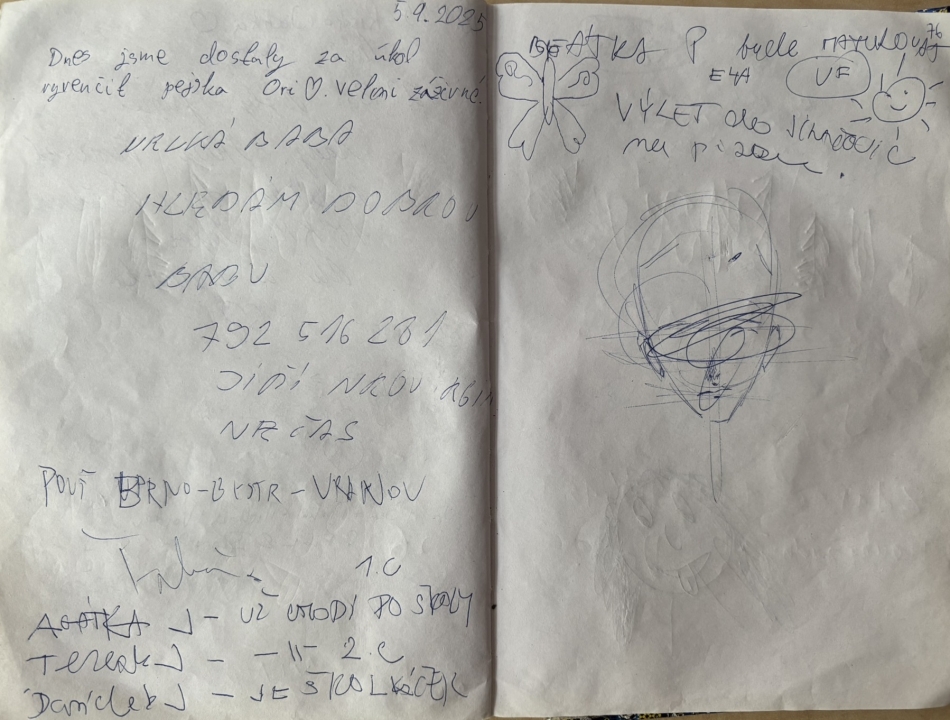 5.9.2025
Dnes jsme dostaly za úkol
vyvenčit pejska Ori ♡. Velmi záživné.
VELKÁ BABA
HLEDÁM DOBROU
BABU
792 516 281
JIŘÍ
NEČAS
POUŤ BRNO-BYSTR-VRANOV
1.C
AGÁTKA J - UŽ CHODÍ DO ŠKOLY
TEREZK J - -11- 2.C
Daníček J - JE ŠKOLKÁČEK
BEÁTKA P bude MATUROVAT
76
E4A
VÝLET do
na pizzu.